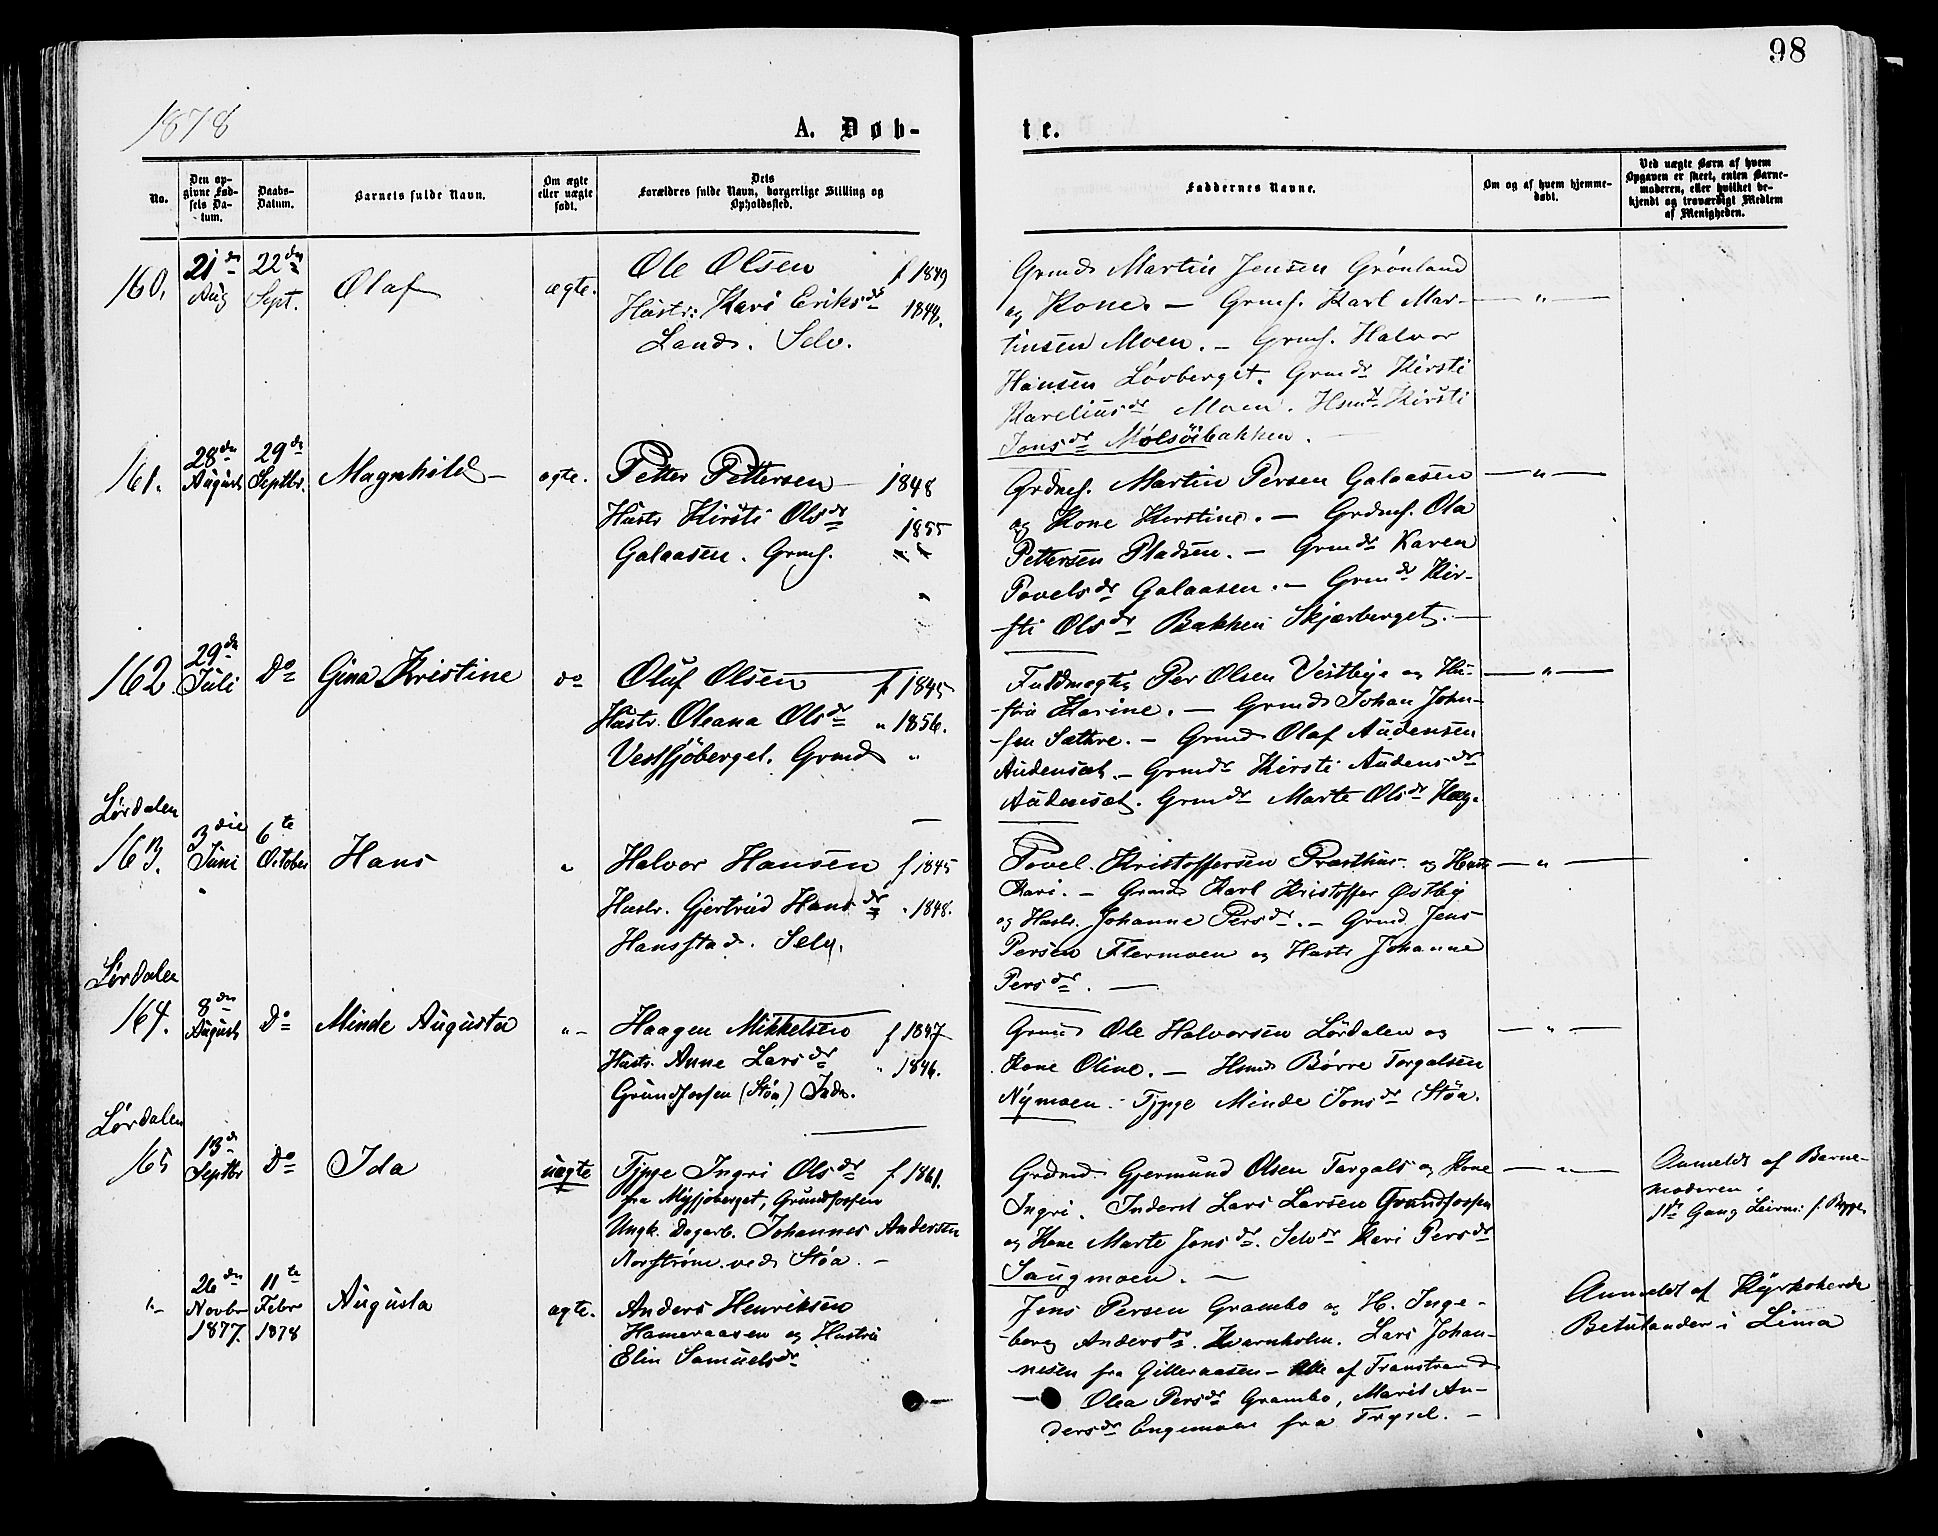 98
1878
A. Døb-
te.
No.
Den op-
givne Fød-
sels Da-
tum.
Daabs-
Datum.
Barnets fulde Navn.
Om ægte
eller uægte
født.
Dets
Forældres fulde Navn, borgerlige Stilling og
Opholdssted.
Faddernes Navne.
Om og af hvem hjemme-
døbt.
Ved uægte Børn af hvem
Opgaven er skeet, enten Barne-
moderen, eller hvilket be-
kjendt og troværdigt Medlem
af Menigheden.
160.
21 de
Aug
22 de
Sept.
Olaf
ægte.
Ole Olsen f 1849
Hustr: Kari Eriks dr 1848.
Land. Selv.
Grmd Martin Jensen Grönland
og Kone. — Grmf. Karl Mar-
tinsen Moen. — Grmf. Halvor
Hansen Lövberget. Grmdr Kirsti
Karelius dr Moen. Hsmdr Kirsti
Jons dr Mölsöibakken.
— " —
161.
28 de
August
29 de
Septbr.
Magnhild
ægte.
Petter Pettersen 1848
Hustr Kirsti Ols dr 1855
Galaasen. Grmf.
Grdmf. Martin Persen Galaasen
og Kone Kerstine. — Grdmf. Ola
Pettersen Pladsen. — Grmdr Karen
Povels dr Galaasen. — Grmdr Kir-
sti Ols dr Bakken Skjærberget. —
— " —
162.
29 de
Juli
Do
Gina Kristine
do
Oluf Olsen f 1845
Hustr. Oleana Ols dr " 1856.
Vestsjöberget. Grmd "
Fuldmægtig Per Olsen Vestby og Hu-
stru Karine. — Grmd Johan John-
sen Sæthre. — Grmd Olaf Audensen
Audensæt. — Grmdr Kirsti Audens dr
Audensæt. Grmdr Marte Ols dr Hæg.
— " —
Lørdalen
163.
3 die
Juni
6 te
October
Hans
"
Halvor Hansen f 1845
Hustr. Gjertrud Hans dr " 1848.
Hansstad. Selv.
Povel Kristoffersen Præsthus og Hust
Kari. — Grmd Karl Kristoffer Østby
og Hustr. Johanne Pers dr. — Grmd Jens
Persen Flermoen og Hustr Johanne
Pers dr. —
— " —
Lørdalen
164.
8 de
August
Do
Minde Augusta
" -
Haagen Mikkelsen f 1847
Hustr. Anne Lars dr " 1846.
Grundforsen (Støa) Inde.
Grmd Ole Halvorsen Lørdalen og
Kone Oline. — Hsmd Börre Torgalsen
Nymoen. Tjpge Minde Jons dr Støa.
— " —
Lørdalen
165
13 de
Septbr
Do
Ida
uægte
Tjpge Ingri Ols dr f 1861.
fra Mysjöberget, Grundforsen
Ungk. Dagarb. Johannes Andersen
Norström. ved Støa. —
Grdmd Gjermund Olsen Torgals og Kone
Ingri. Inderst Lars Larsen Grundforsen
og Kone Marte Jons dr. Selvdr Kari Pers dr
Saugmoen. —
— " —
Anmeldt af Barne-
moderen.
1ste Gang Leierm: f. Begge
" -
26 de
Novbr
1877.
11 te
Febr
1878
Augusta
ægte.
Anders Henriksen
Hameraasen og Hustru
Elin Samuels dr
Jens Persen Grambo og H. Inge-
borg Anders dr. Kvarnholm. Lars Johan-
nesen fra Gilleraasen — Alle af Transtrand
— Olea Pers dr Grambo, Marit An-
ders dr Engemoen fra Trysil. —
Anmeldt af Kyrkoherde
Betulander i Lima